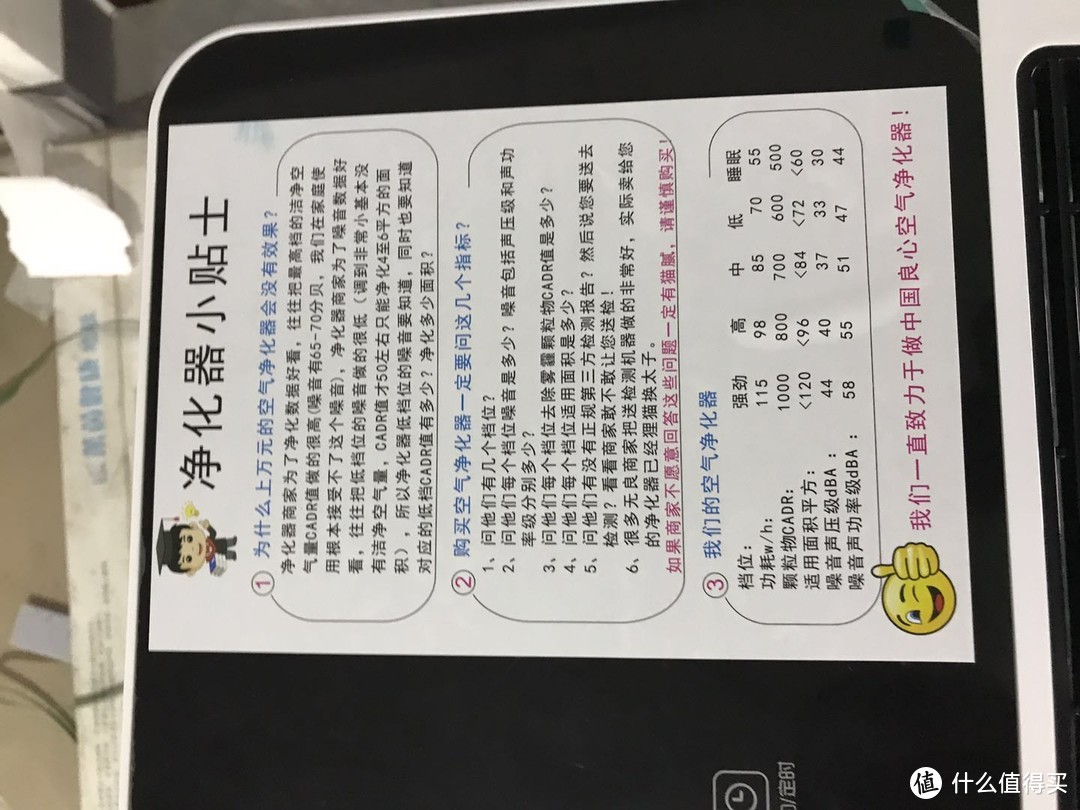 净化器小贴士
① 为什么上万元的空气净化器会没有效果？
净化器商家为了净化数据好看，往往把最高档的洁净空
气量CADR值做的很高(噪音有65-70分贝，我们在家庭使
用根本接受不了这个噪音)，净化器商家为了噪音数据好
看，往往把低档位的噪音做的很低（调到非常小基本没
有洁净空气量，CADR值才50左右只能净化4至6平方的面
积），所以净化器低档位的噪音要知道，同时也要知道
对应的低档CADR值有多少？净化多少面积？
② 购买空气净化器一定要问这几个指标？
1、问他们有几个档位？
2、问他们每个档位噪音是多少？噪音包括声压级和声功
率级分别多少？
3、问他们每个档位去除雾霾颗粒物CADR值是多少？
4、问他们每个档位适用面积是多少？
5、问他们有没有正规第三方检测报告？然后说您要送去
检测？看看商家敢不敢让您送检！
6、很多无良商家把送检测机器做的非常好，实际卖给您
的净化器已经狸猫换太子。
如果商家不愿意回答这些问题一定有猫腻，请谨慎购买！
③ 我们的空气净化器
档位： 强劲 高 中 低 睡眠
功耗w/h： 115 98 85 70 55
颗粒物CADR： 1000 800 700 600 500
适用面积平方： <120 <96 <84 <72 <60
噪音声压级dBA： 44 40 37 33 30
噪音声功率级dBA： 58 55 51 47 44
我们一直致力于做中国良心空气净化器！
/定时
值 什么值得买